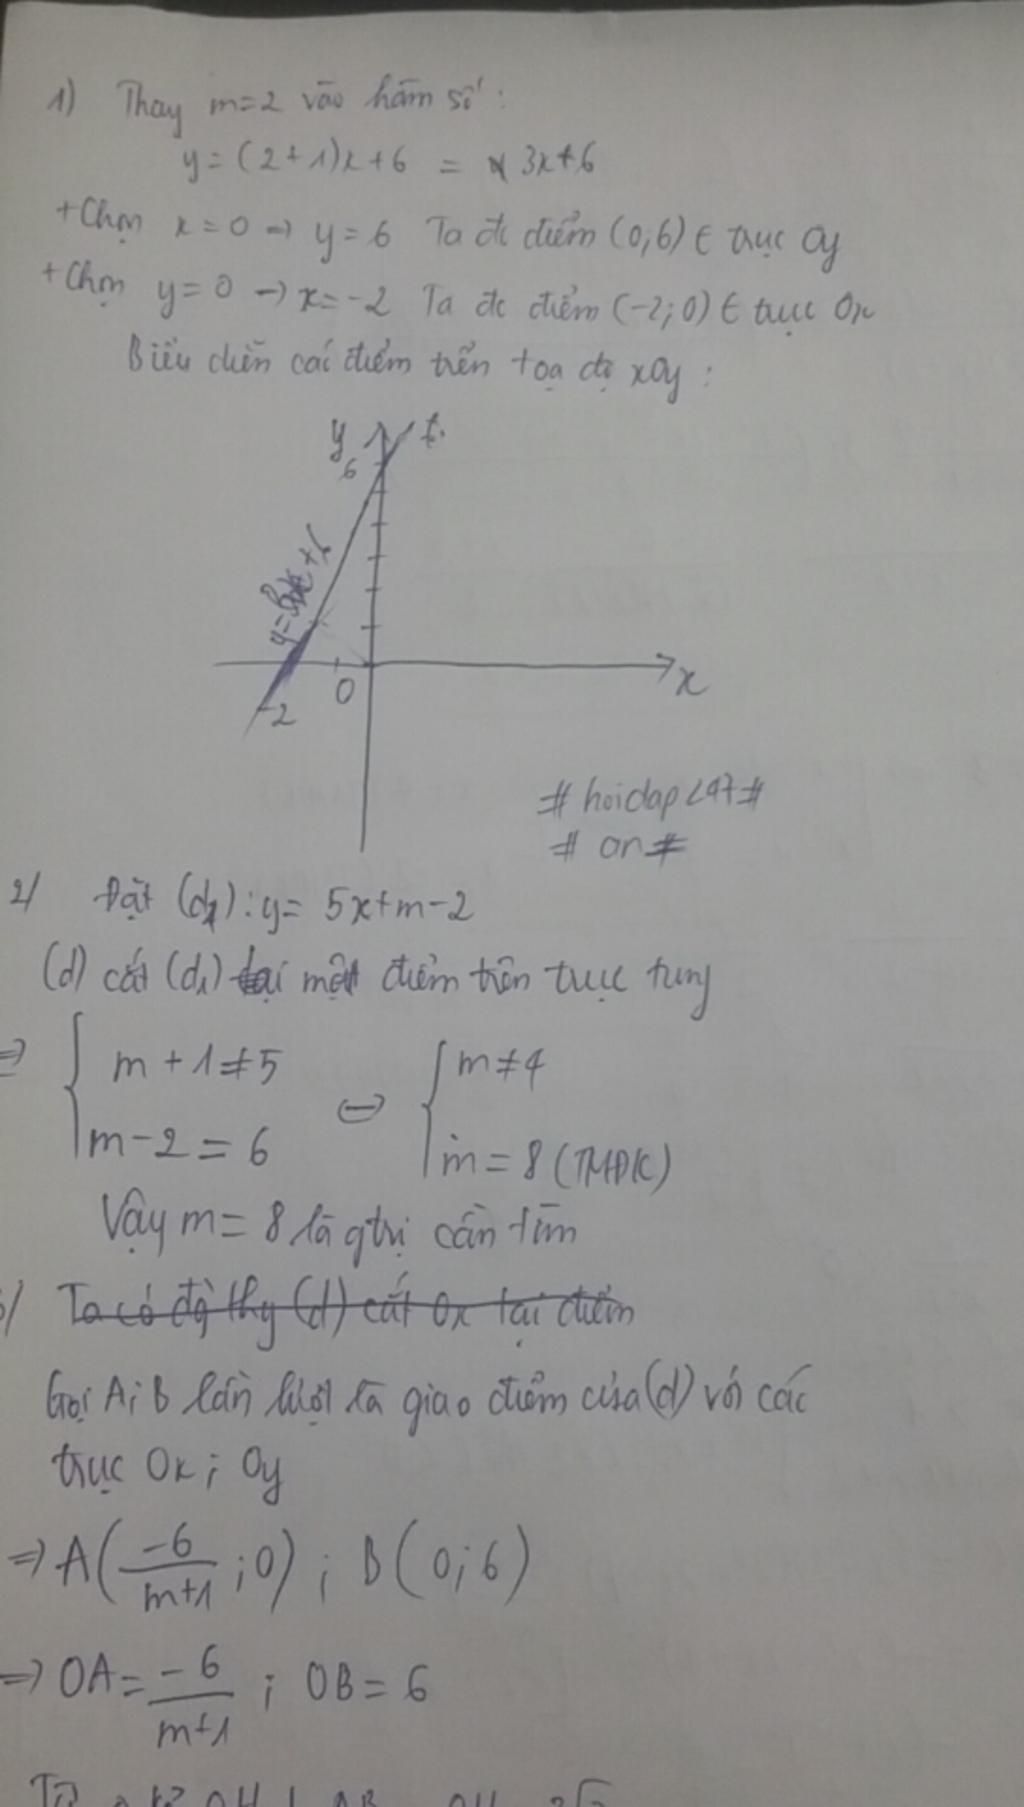 1) Thay m=2 vào hàm số:
y=(2+1)x+6 = 3x+6
+Chọn x=0 → y=6 Ta đc điểm (0;6) ∈ trục Oy
+Chọn y=0 → x=-2 Ta đc điểm (-2;0) ∈ trục Ox
Biểu diễn các điểm trên toạ độ xOy:
y
6
+6
x
0
-2
# hoidap247#
# on#
2/ Đặt (d1): y= 5x+m-2
(d) cắt (d1) tại một điểm trên trục tung
=> { m+1≠5 <=> { m≠4
m-2=6 m=8 (TMĐK)
Vậy m=8 là gtrị cần tìm
Ta có độ thy (d) cắt Ox tại điểm
Gọi A;B lần lượt là giao điểm của (d) với các
trục Ox; Oy
=> A(-6/m+1;0); B(0;6)
=> OA=-6/m+1; OB=6